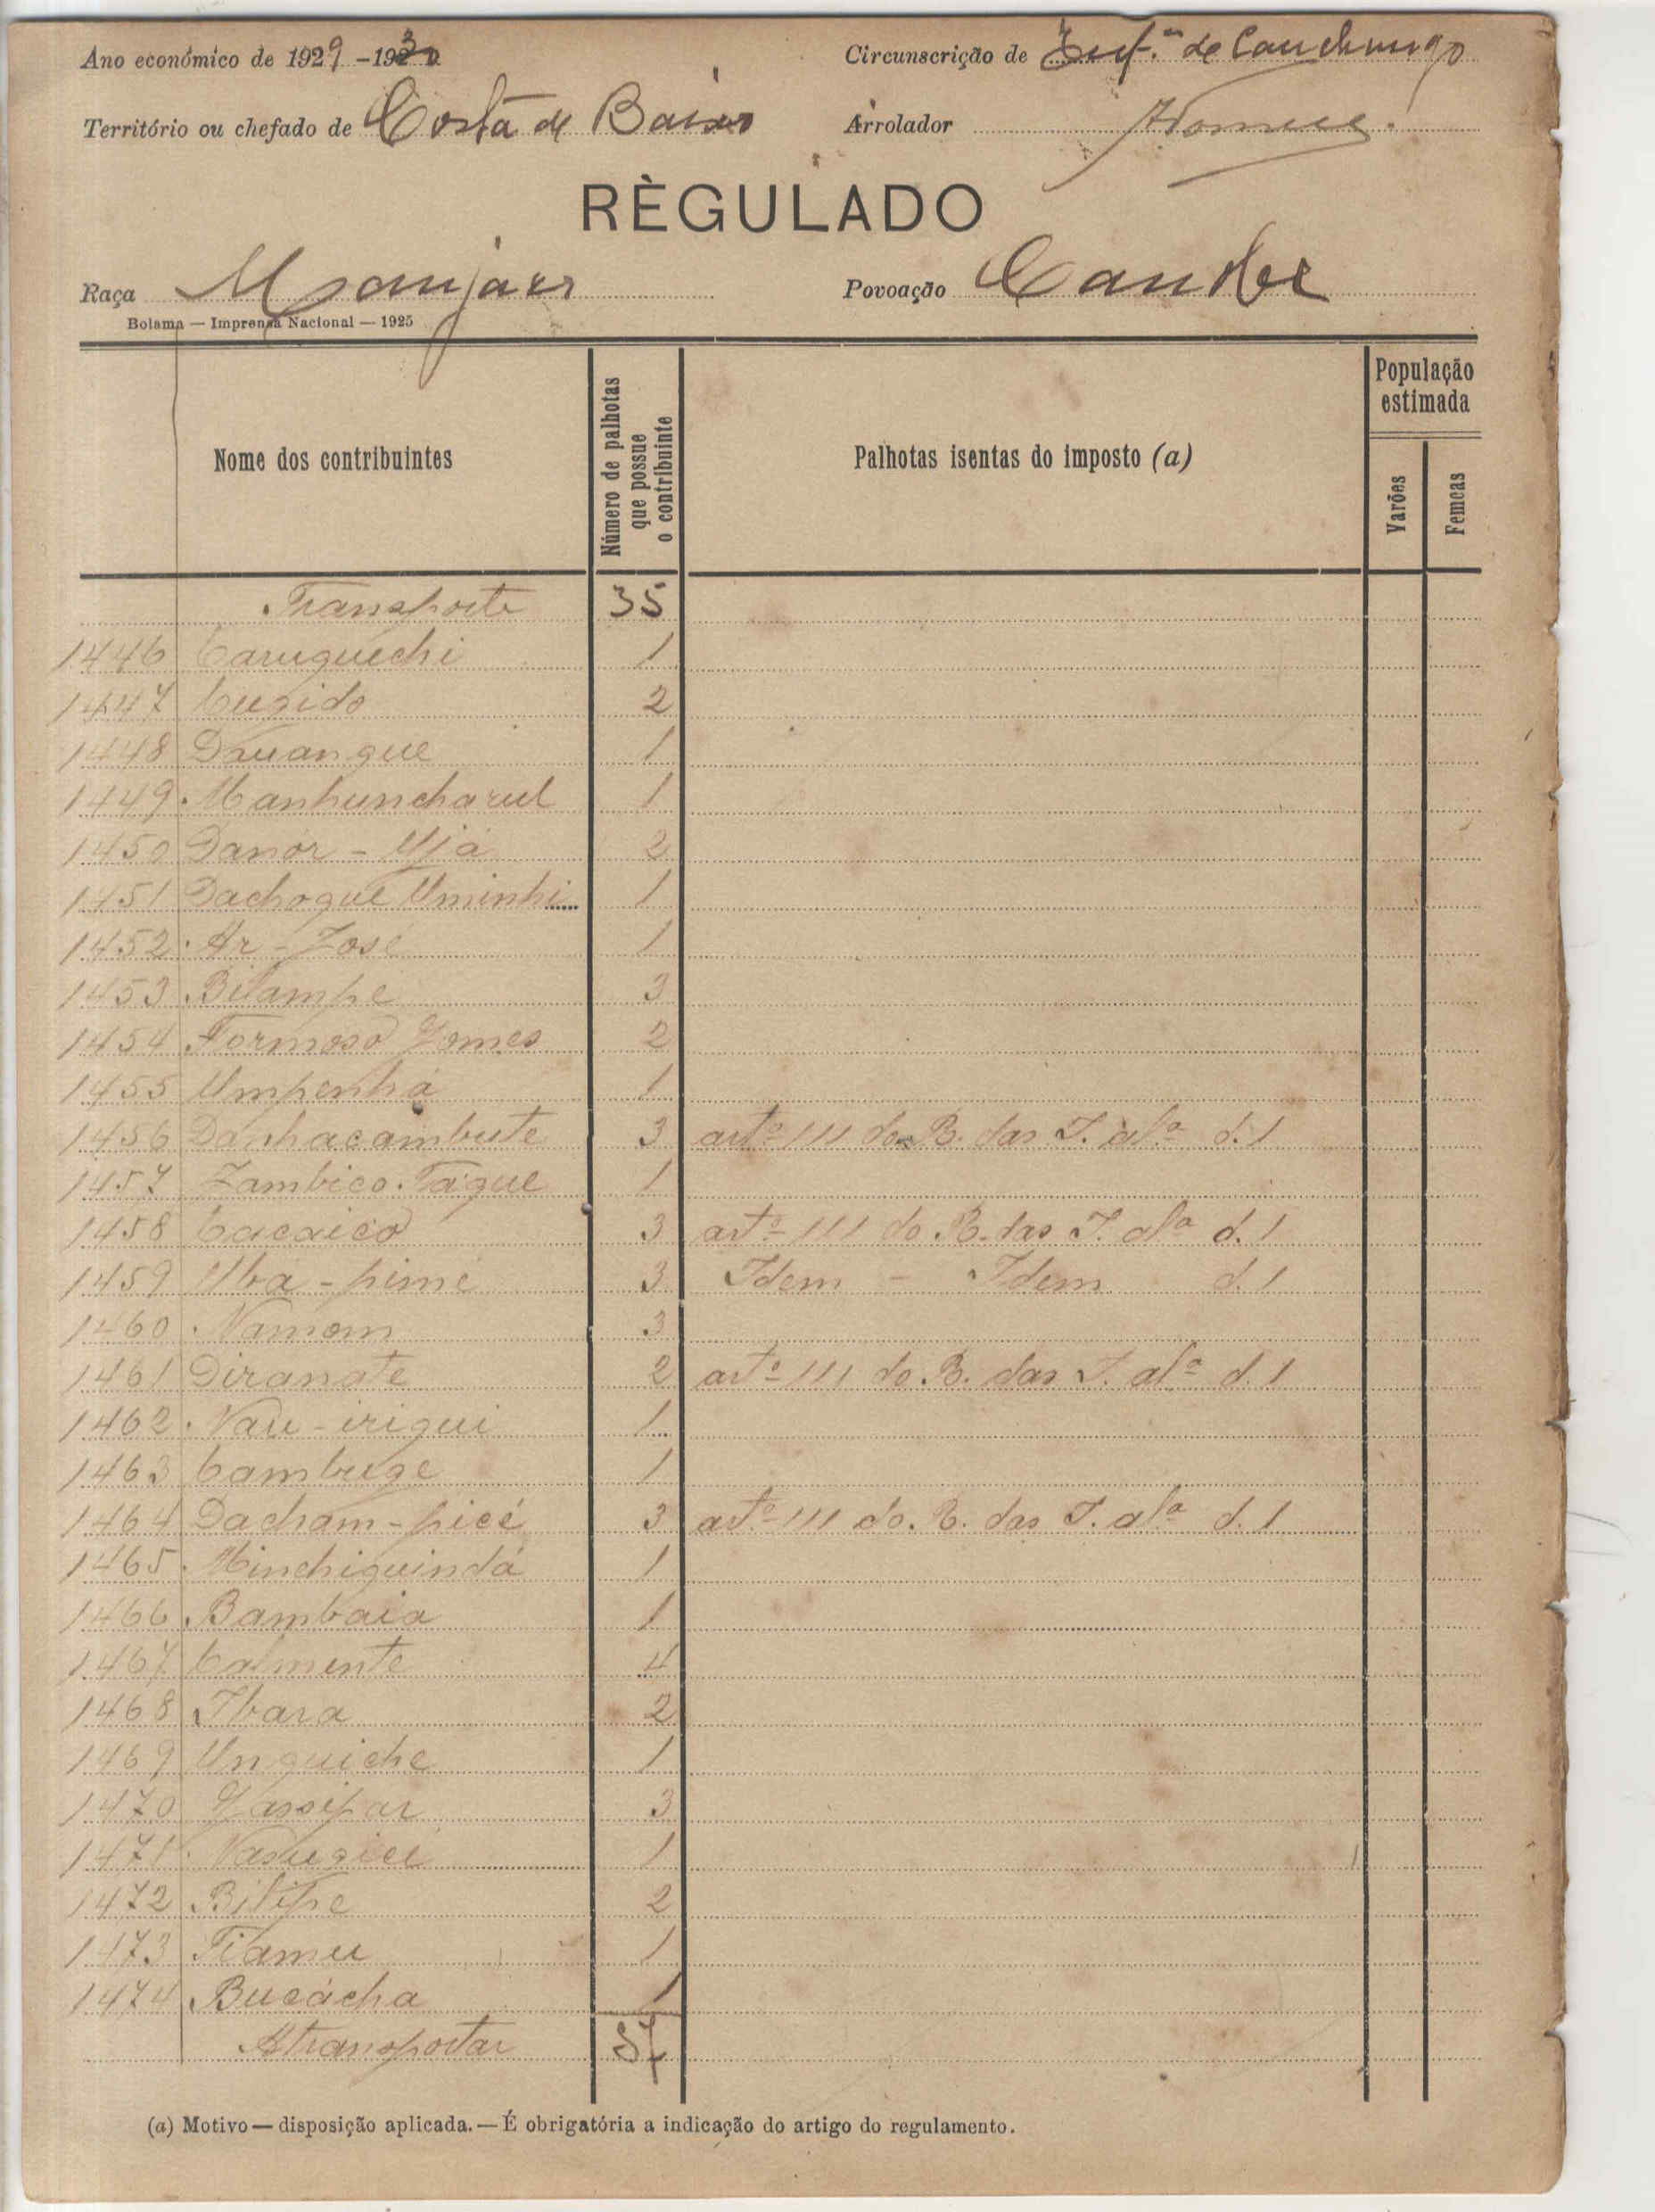 Ano económico de 1929-1930
Circunscrição de de Canchungo
Território ou chefado de Costa de Baixo
Arrolador
RÈGULADO
Raça Manjaca
Povoação Candê
Bolama — Imprensa Nacional — 1925
Nome dos contribuintes
Número de palhotas que possue o contribuinte
Palhotas isentas do imposto (a)
População estimada
Varões
Femeas
Transporte 35
1446 Caruguechi 1
1447 Cugido 2
1448 Druangue 1
1449 Manhuncharul 1
1450 Danór - Ujá 2
1451 Dachogue Uminhi 1
1452 Ar - José 1
1453 Bilampe 3
1454 Formoso Gomes 2
1455 Umpenhá 1
1456 Danhacambute 3 artº 111 do R. das I. alª d.1
1457 Zambico Tágue 1
1458 Cacaico 3 artº 111 do R. das I. alª d.1
1459 Uba - pimé 3 Idem - Idem d.1
1460 Namom 3
1461 Diranate 2 artº 111 do R. das I. alª d.1
1462 Nau - irigui 1
1463 Cambuge 1
1464 Dacham - picé 3 artº 111 do R. das I. alª d.1
1465 Minchiguindá 1
1466 Bambaia 1
1467 Calmente 4
1468 Ibara 2
1469 Unguiche 1
1470 Gassipar 3
1471 1
1472 Bilipe 2
1473 Tiamu 1
1474 Bucácha 1
A transportar
(a) Motivo — disposição aplicada. — É obrigatória a indicação do artigo do regulamento.